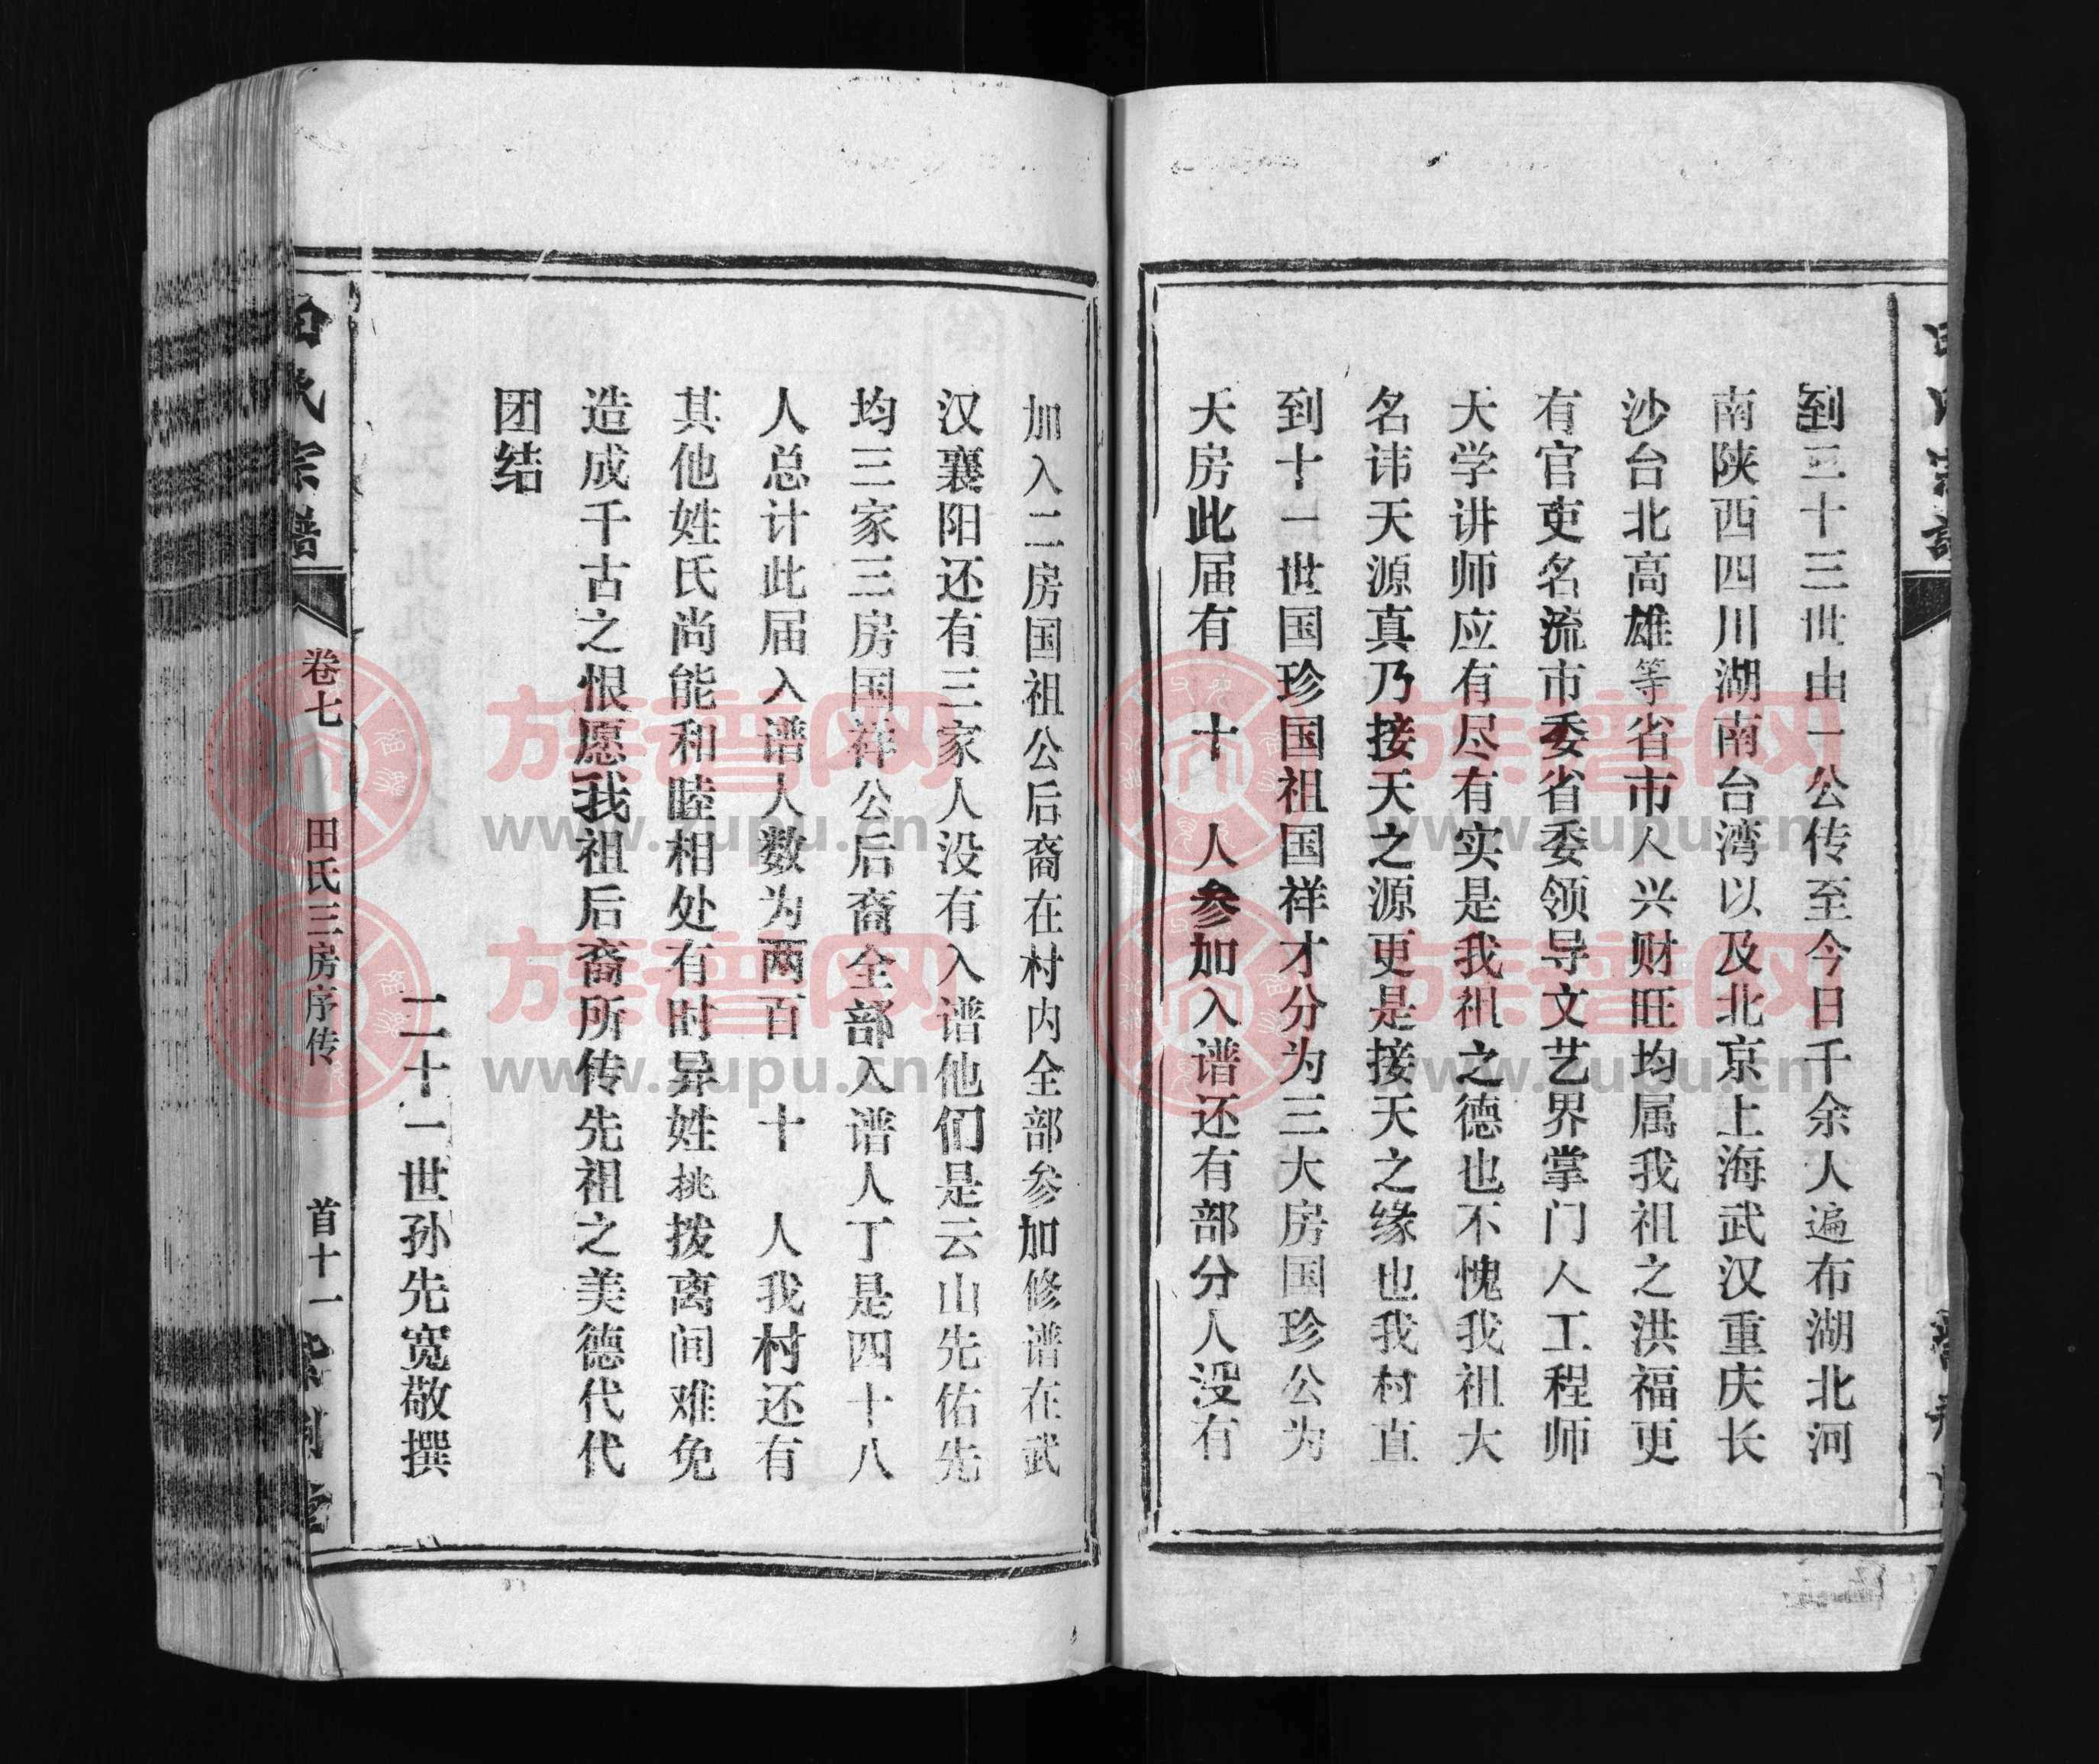 到三十三世由一公传至今日千余人遍布湖北河
南陕西四川湖南台湾以及北京上海武汉重庆长
沙台北高雄等省市人兴财旺均属我祖之洪福更
有官吏名流市委省委领导文艺界掌门人工程师
大学讲师应有尽有实是我祖之德也不愧我祖大
名讳天源真乃接天之源更是接天之缘也我村直
到十一世国珍国祖国祥才分为三大房国珍公为
大房此届有 十 人参加入谱还有部分人没有
加入二房国祖公后裔在村内全部参加修谱在武
汉襄阳还有三家人没有入谱他们是云山先佑先
均三家三房国祥公后裔全部入谱人丁是四十八
人总计此届入谱人数为两百 十 人我村还有
其他姓氏尚能和睦相处有时异姓挑拨离间难免
造成千古之恨愿我祖后裔所传先祖之美德代代
团结
二十一世孙先宽敬撰
田氏宗谱
卷七 田氏三房序传 首十一
族谱网
www.zupu.cn
族谱网
www.zupu.cn
族谱网
www.zupu.cn
族谱网
www.zupu.cn